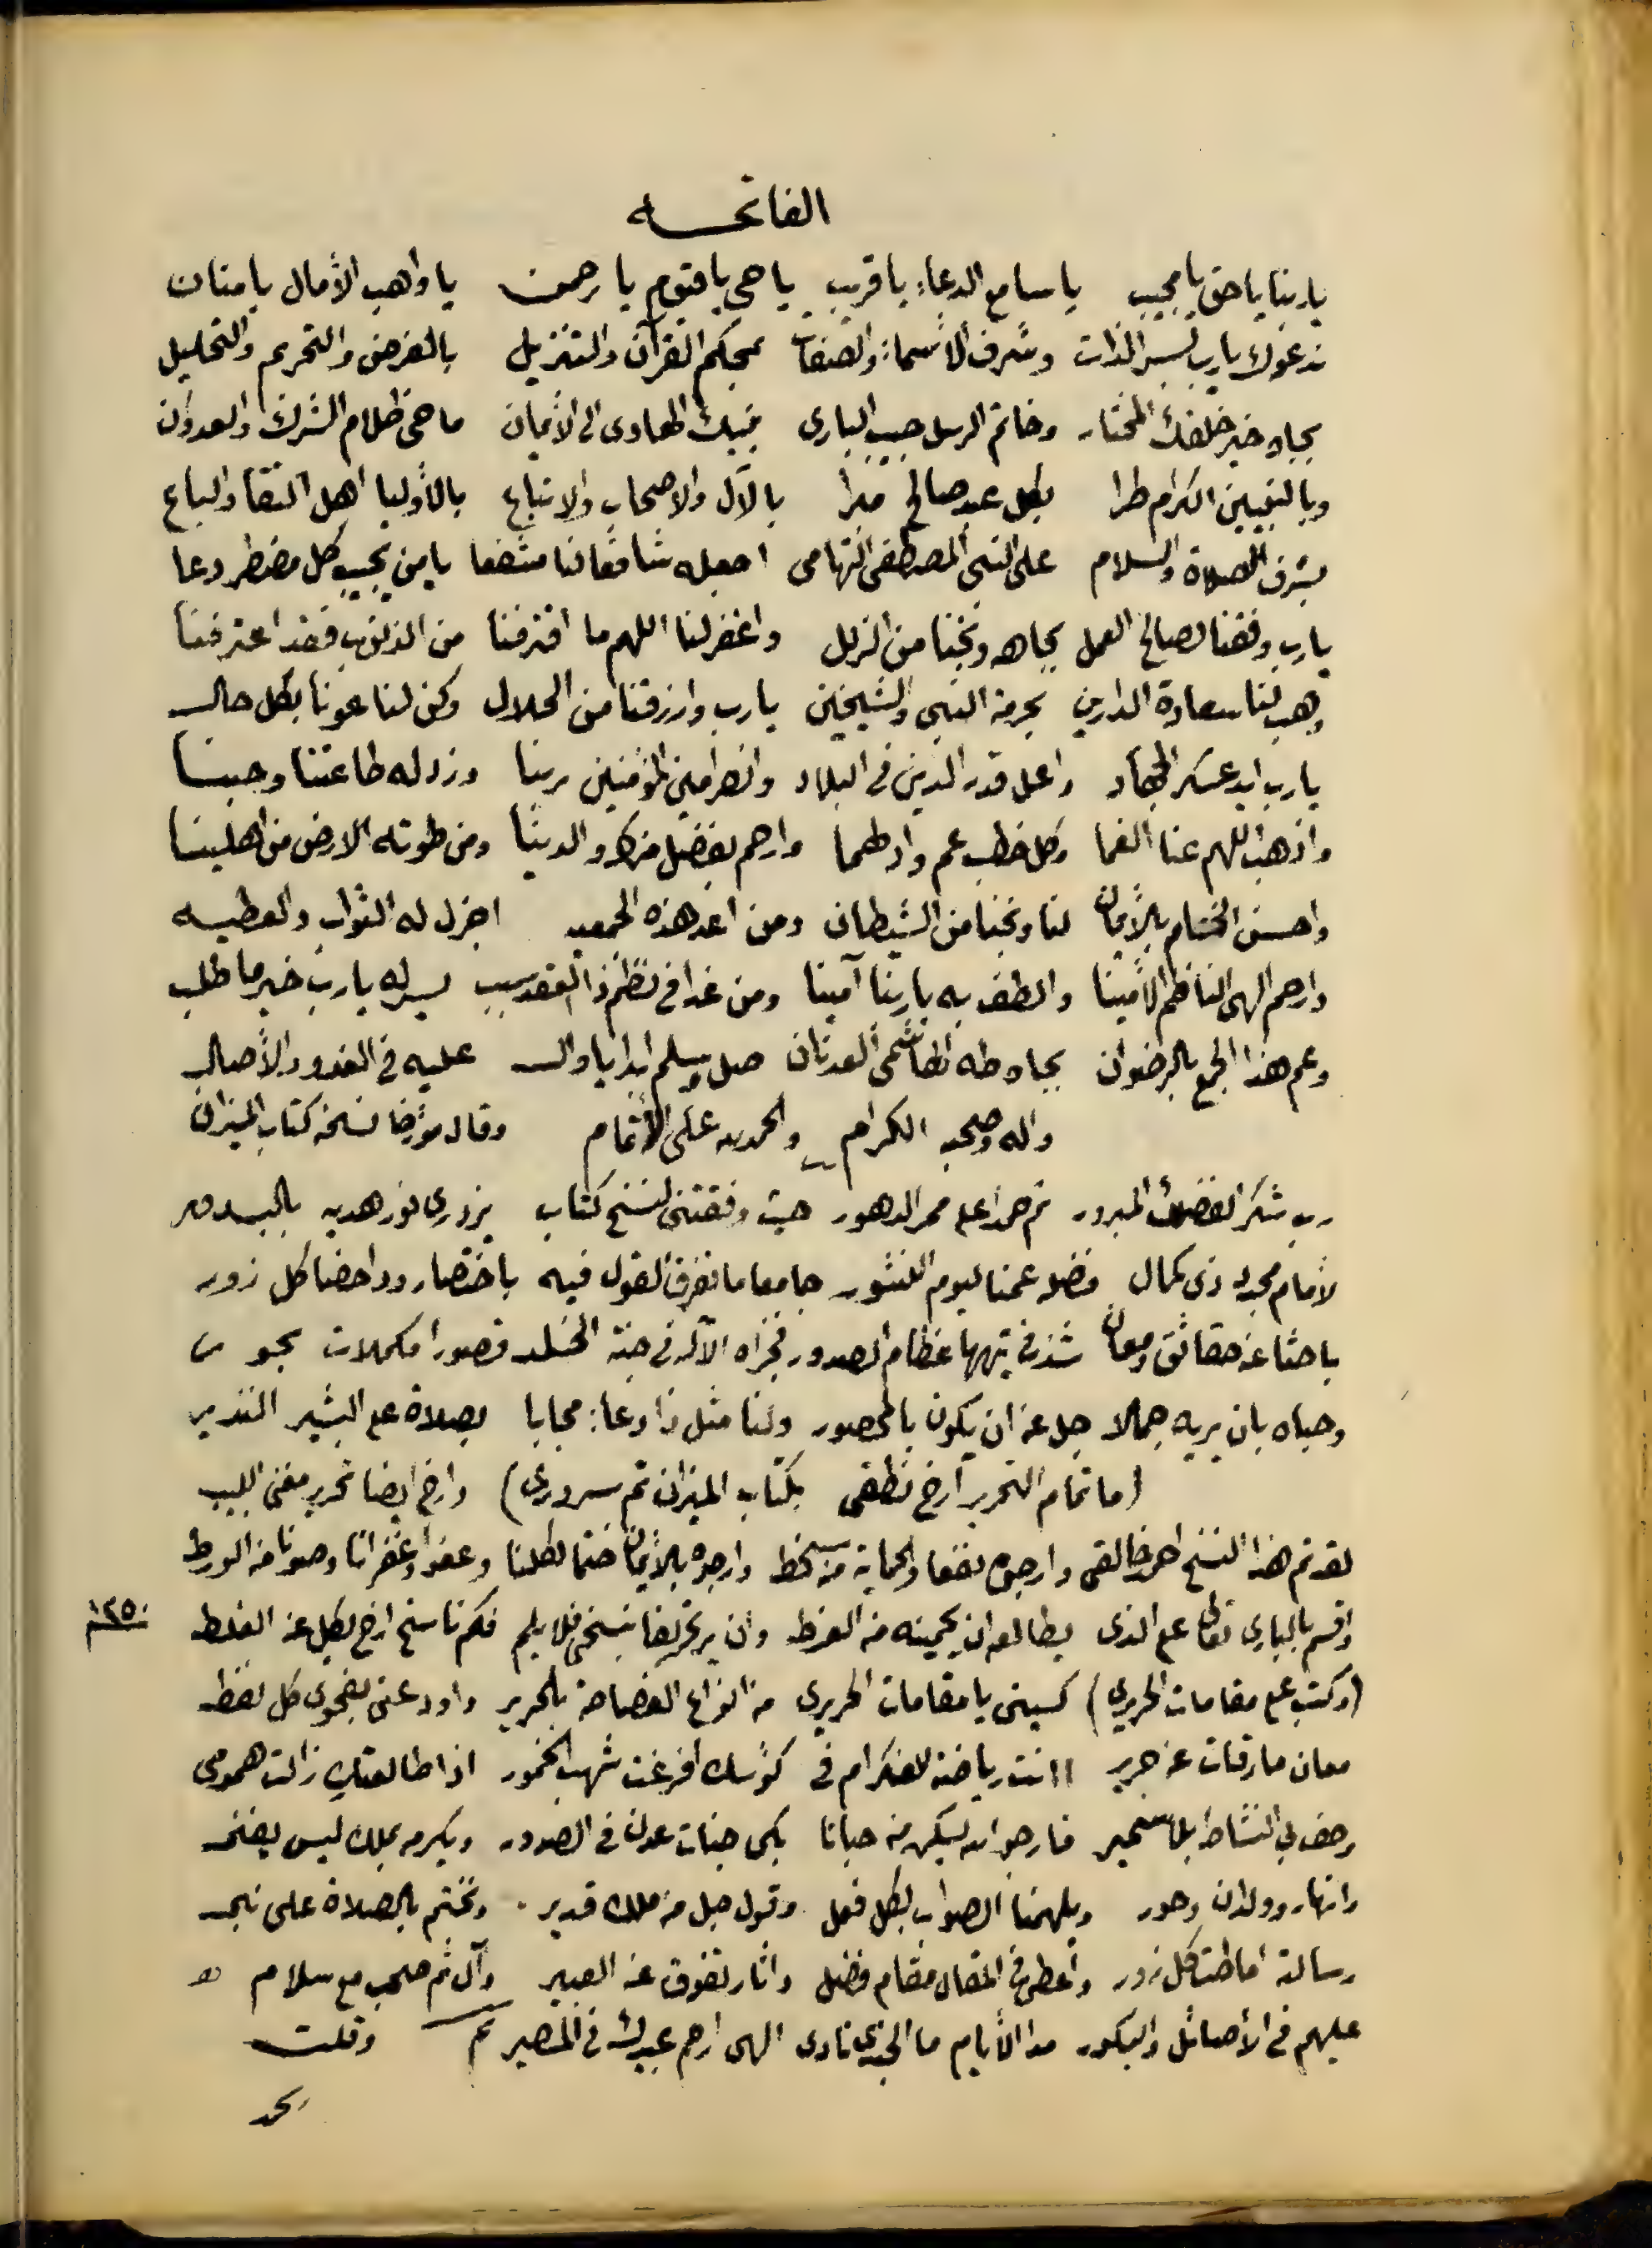 الفاتحه
ياربنا ياحق يا مجيب ياسامع الدعاء ياقريب ياحي ياقيوم يارحمن ياواهب الأمال يامنان
ندعوك يارب بسر الذات وشرف الأسماء والصفات بمحكم القرآن والتنزيل بالفرض والتحريم والتحليل
بجاه خير خلقك المختار وخاتم الرسل حبيب البارى نبيك الهادى الى الأيمان ماحى ظلام الشرك والعدوان
وبالنبيين الكرام طرا بكل عبد صالح مبرا بالآل والاصحاب والاتباع بالأوليا اهل التقا والباع
بشرف الصلاة والسلام على النبى المصطفى التهامى اجعله شافعا لنا مشفعا يامن يجيب كل مضطر دعا
يارب وفقنا لصالح العمل بجاهه ونجنا من الزلل واغفر لنا اللهم ما اقترفنا من الذنوب فقد اعترفنا
وهب لنا سعادة الدارين بحرمة النبى والشيخين يارب وارزقنا من الحلال وكن لنا عونا بكل حال
يارب ايد عسكر الجهاد واعل قدر الدين فى البلاد وانصر امين المؤمنين ربنا وزد له طاعتنا وحبنا
واذهب اللهم عنا الغما وكل خطب عم وادلهما وارحم بفضل منك والدينا ومن طوته الارض من اهلينا
واحسن الختام بالأيمان لنا ونجنا من الشيطان ومن اعد هذه الجمعيه اجزل له الثواب والعطيه
وارحم الهى الناظم الأمينا والطف به ياربنا آمينا ومن غدا فى نظم ذا العقد سبب يسر له يارب خير ما طلب
وعم هذا الجمع بالرضوان بجاه طه الهاشمى العدنان صل وسلم ابدا ياوال عليه فى الغدو والأصال
واله وصحبه الكرام والحمد لله على الأتمام وقال مؤرخا نسخه كتاب الميزان
رب شكرا لفضلك المبرور ثم حمدا على ممر الدهور حيث وفقتنى لنسخ كتاب يزدرى نور هديه بالبدور
لأمام مجدد ذى كمال فضله عمنا ليوم النشور جامعا ما تفرق القول فيه باختصار وداحضا كل زور
باحثا عن حقائق ومعان شذ فى تيهها عظام الصدور فجزاه الآله فى جنة الخلد قصورا مكملات بحور
وحباه بان يريه جمالا جل عن ان يكون بالمحصور ولنا مثل ذا دعاء مجابا بصلاة على البشير النذير
(ما تمام التحرير ارخ نطقى بكتاب الميزان تم سرورى) وارخ ايضا تحرير مغنى اللبيب
لقد تم هذا النسخ احمد خالقى وارجوه نفعا والحماية من سخط وارجوه بالأيمان ختما لكلنا وعفوا وغفرانا وصونا من الورط
واقسم بالبارى تعالى على الذى يطالعه ان يحمينه من الفرط وان ير تحريفا بنسخى فلا يلم فكم ناسخ ارخ لكل عن الغلط ١٢٥٠
(وكتب على مقامات الحريري) كسينى يا مقامات الحريرى من انواع الفصاحة بالحرير واودعتى بفحوى كل لفظ
معان مارقات عن جرير اانت رياضة للفكر ام فى كؤسك افرغت شهب الخمور اذا طالعتك زالت همومى
وخف بي النشاط بلا سمير فارجو الله يسكن من حبانا بكى جنات عدن فى الصدور ويكرمه بملك ليس يفنى
وانهار وولدان وحور ويلهمنا الصواب بكل فعل وقول جل من ملك قدير . ونختم بالصلاة على نبى
رسالته اماطت كل زور واعطى فى المقال مقام فضل واثار تفوق عن العبير وآل ثم صحب مع سلام
عليهم فى الأصائل والبكور مدا الأيام ما الجندى نادى الهى ارحم عبيدك فى المصير تم وقلت
بحمد